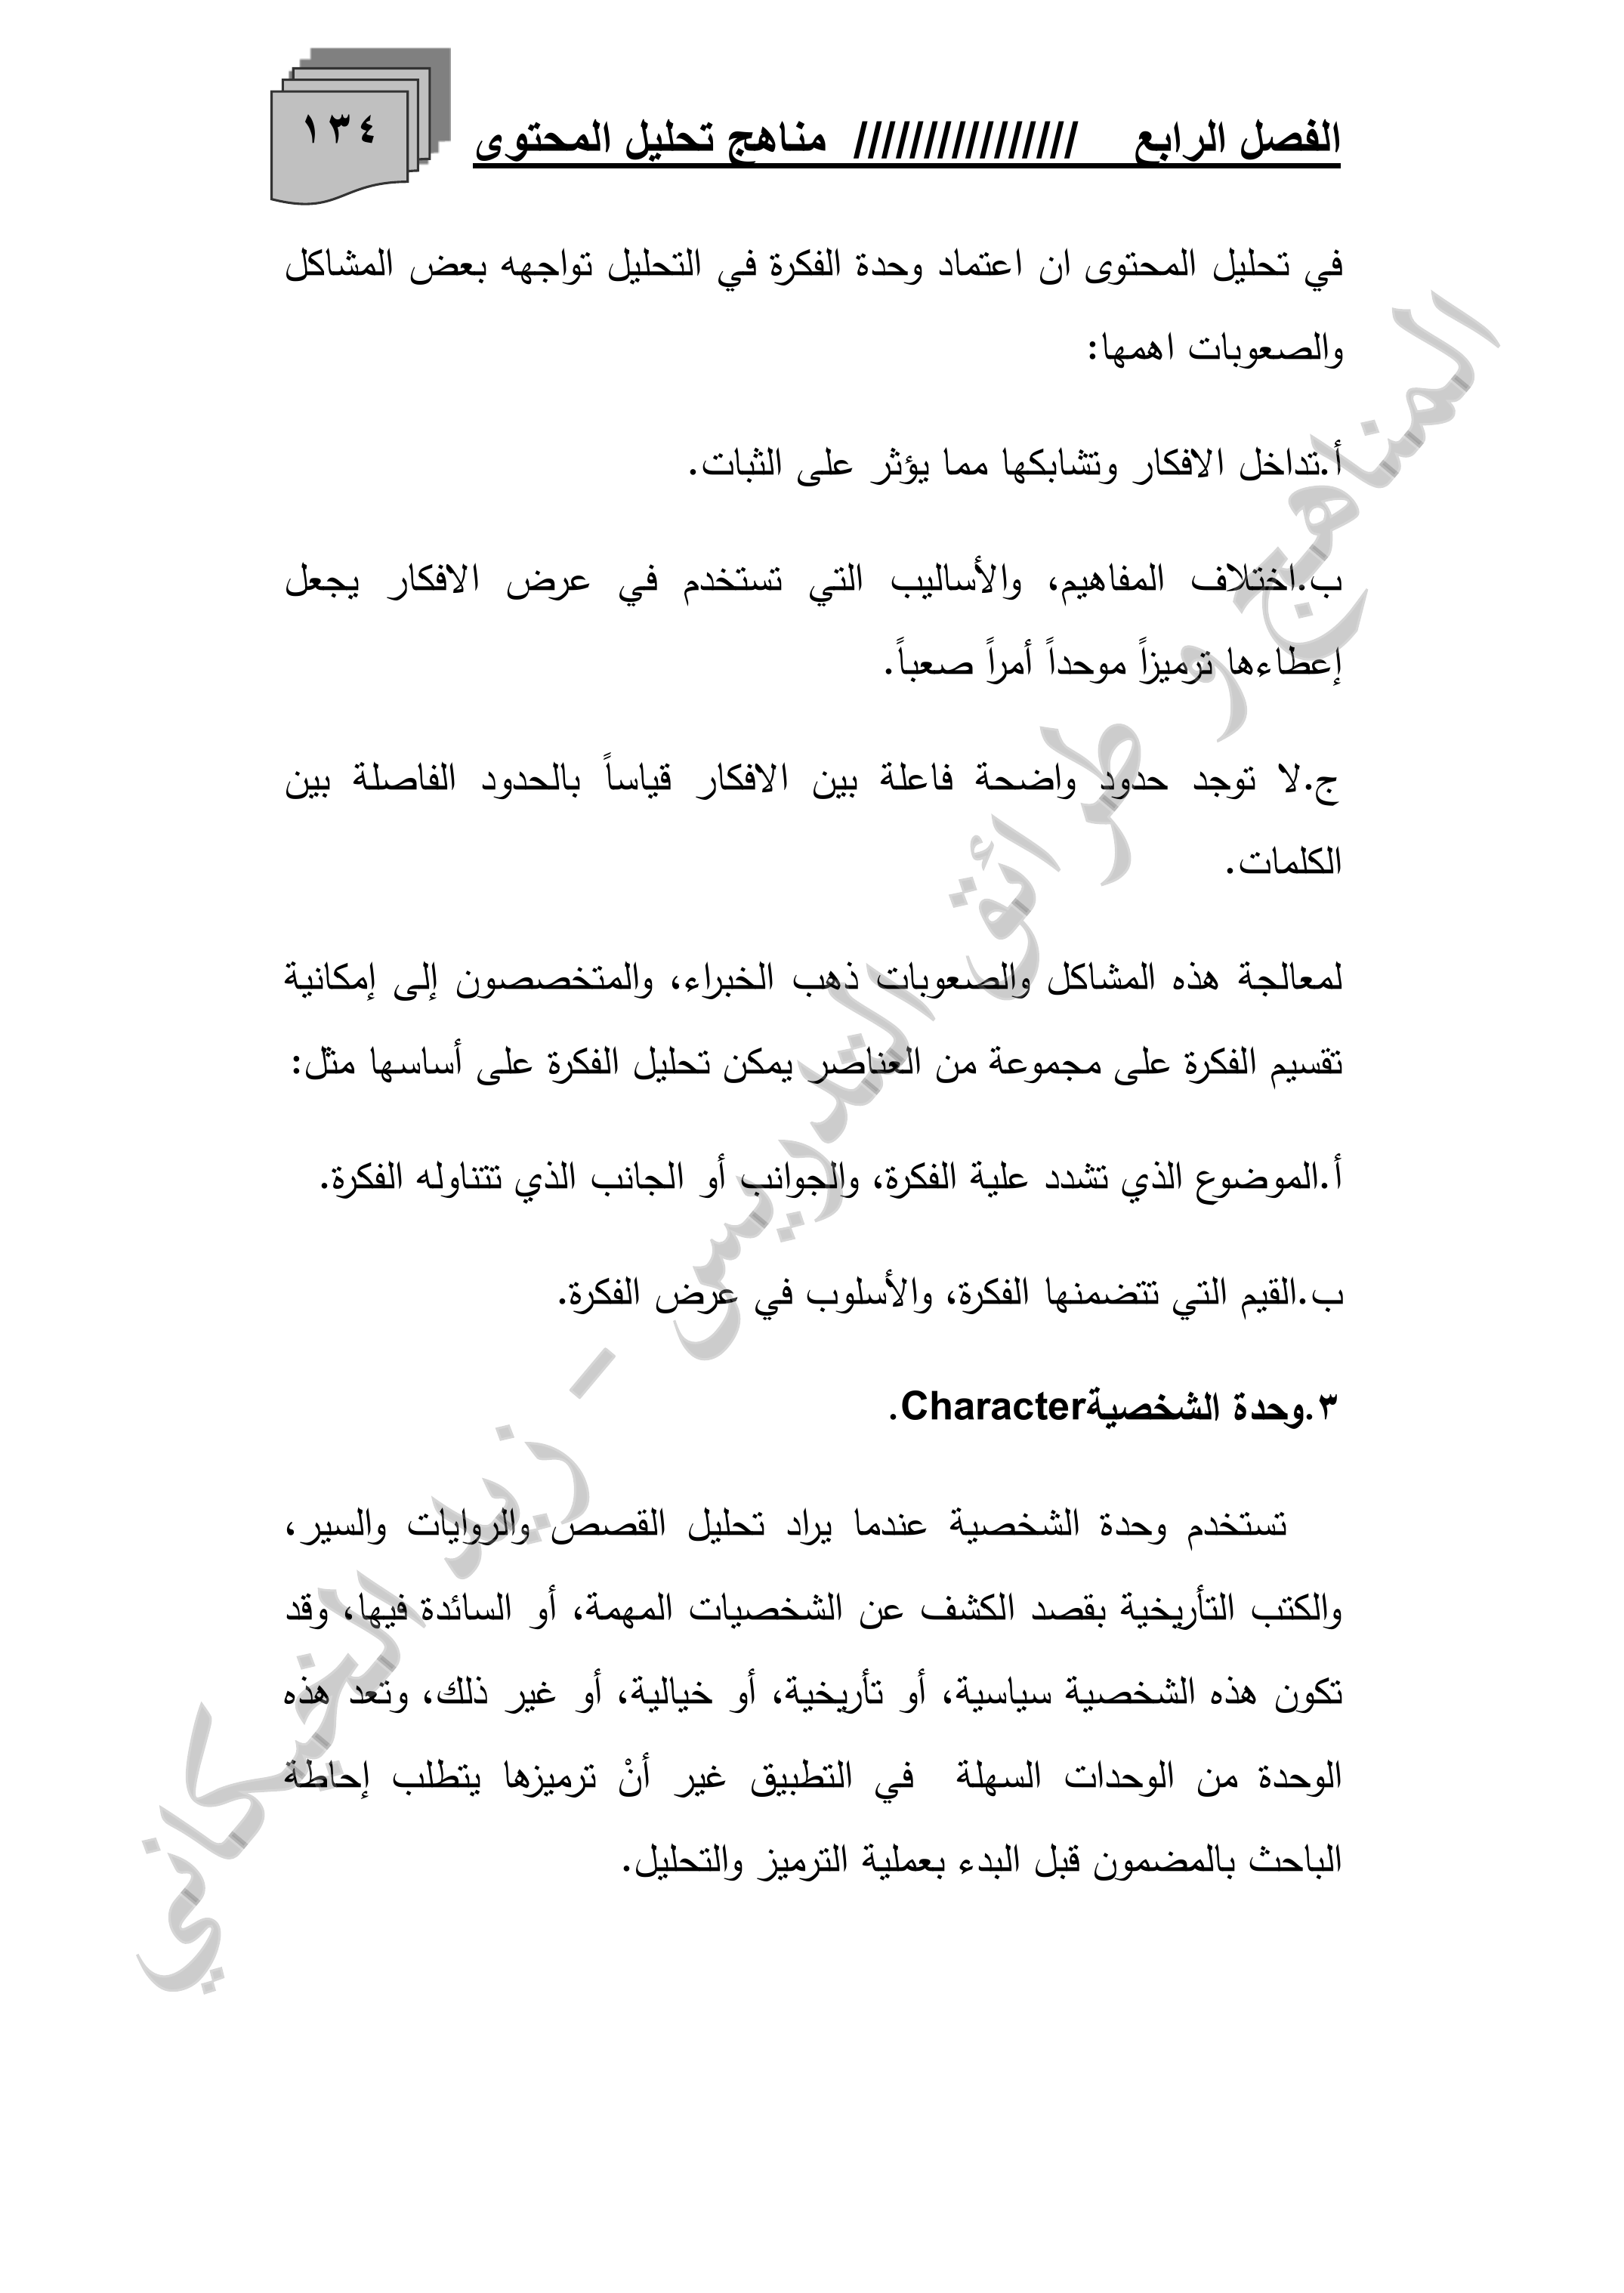 الفصل الرابع //////////////// مناهج تحليل المحتوى
١٣٤
في تحليل المحتوى ان اعتماد وحدة الفكرة في التحليل تواجهه بعض المشاكل
والصعوبات اهمها:
أ.تداخل الافكار وتشابكها مما يؤثر على الثبات.
ب.اختلاف المفاهيم، والأساليب التي تستخدم في عرض الافكار يجعل
إعطاءها ترميزاً موحداً أمراً صعباً.
ج.لا توجد حدود واضحة فاعلة بين الافكار قياساً بالحدود الفاصلة بين
الكلمات.
لمعالجة هذه المشاكل والصعوبات ذهب الخبراء، والمتخصصون إلى إمكانية
تقسيم الفكرة على مجموعة من العناصر يمكن تحليل الفكرة على أساسها مثل:
أ.الموضوع الذي تشدد علية الفكرة، والجوانب أو الجانب الذي تتناوله الفكرة.
ب.القيم التي تتضمنها الفكرة، والأسلوب في عرض الفكرة.
٣.وحدة الشخصيةCharacter.
تستخدم وحدة الشخصية عندما يراد تحليل القصص والروايات والسير،
والكتب التأريخية بقصد الكشف عن الشخصيات المهمة، أو السائدة فيها، وقد
تكون هذه الشخصية سياسية، أو تأريخية، أو خيالية، أو غير ذلك، وتعد هذه
الوحدة من الوحدات السهلة في التطبيق غير أنْ ترميزها يتطلب إحاطة
الباحث بالمضمون قبل البدء بعملية الترميز والتحليل.
المناهج و طرائق التدريس - زيد الخيكاني